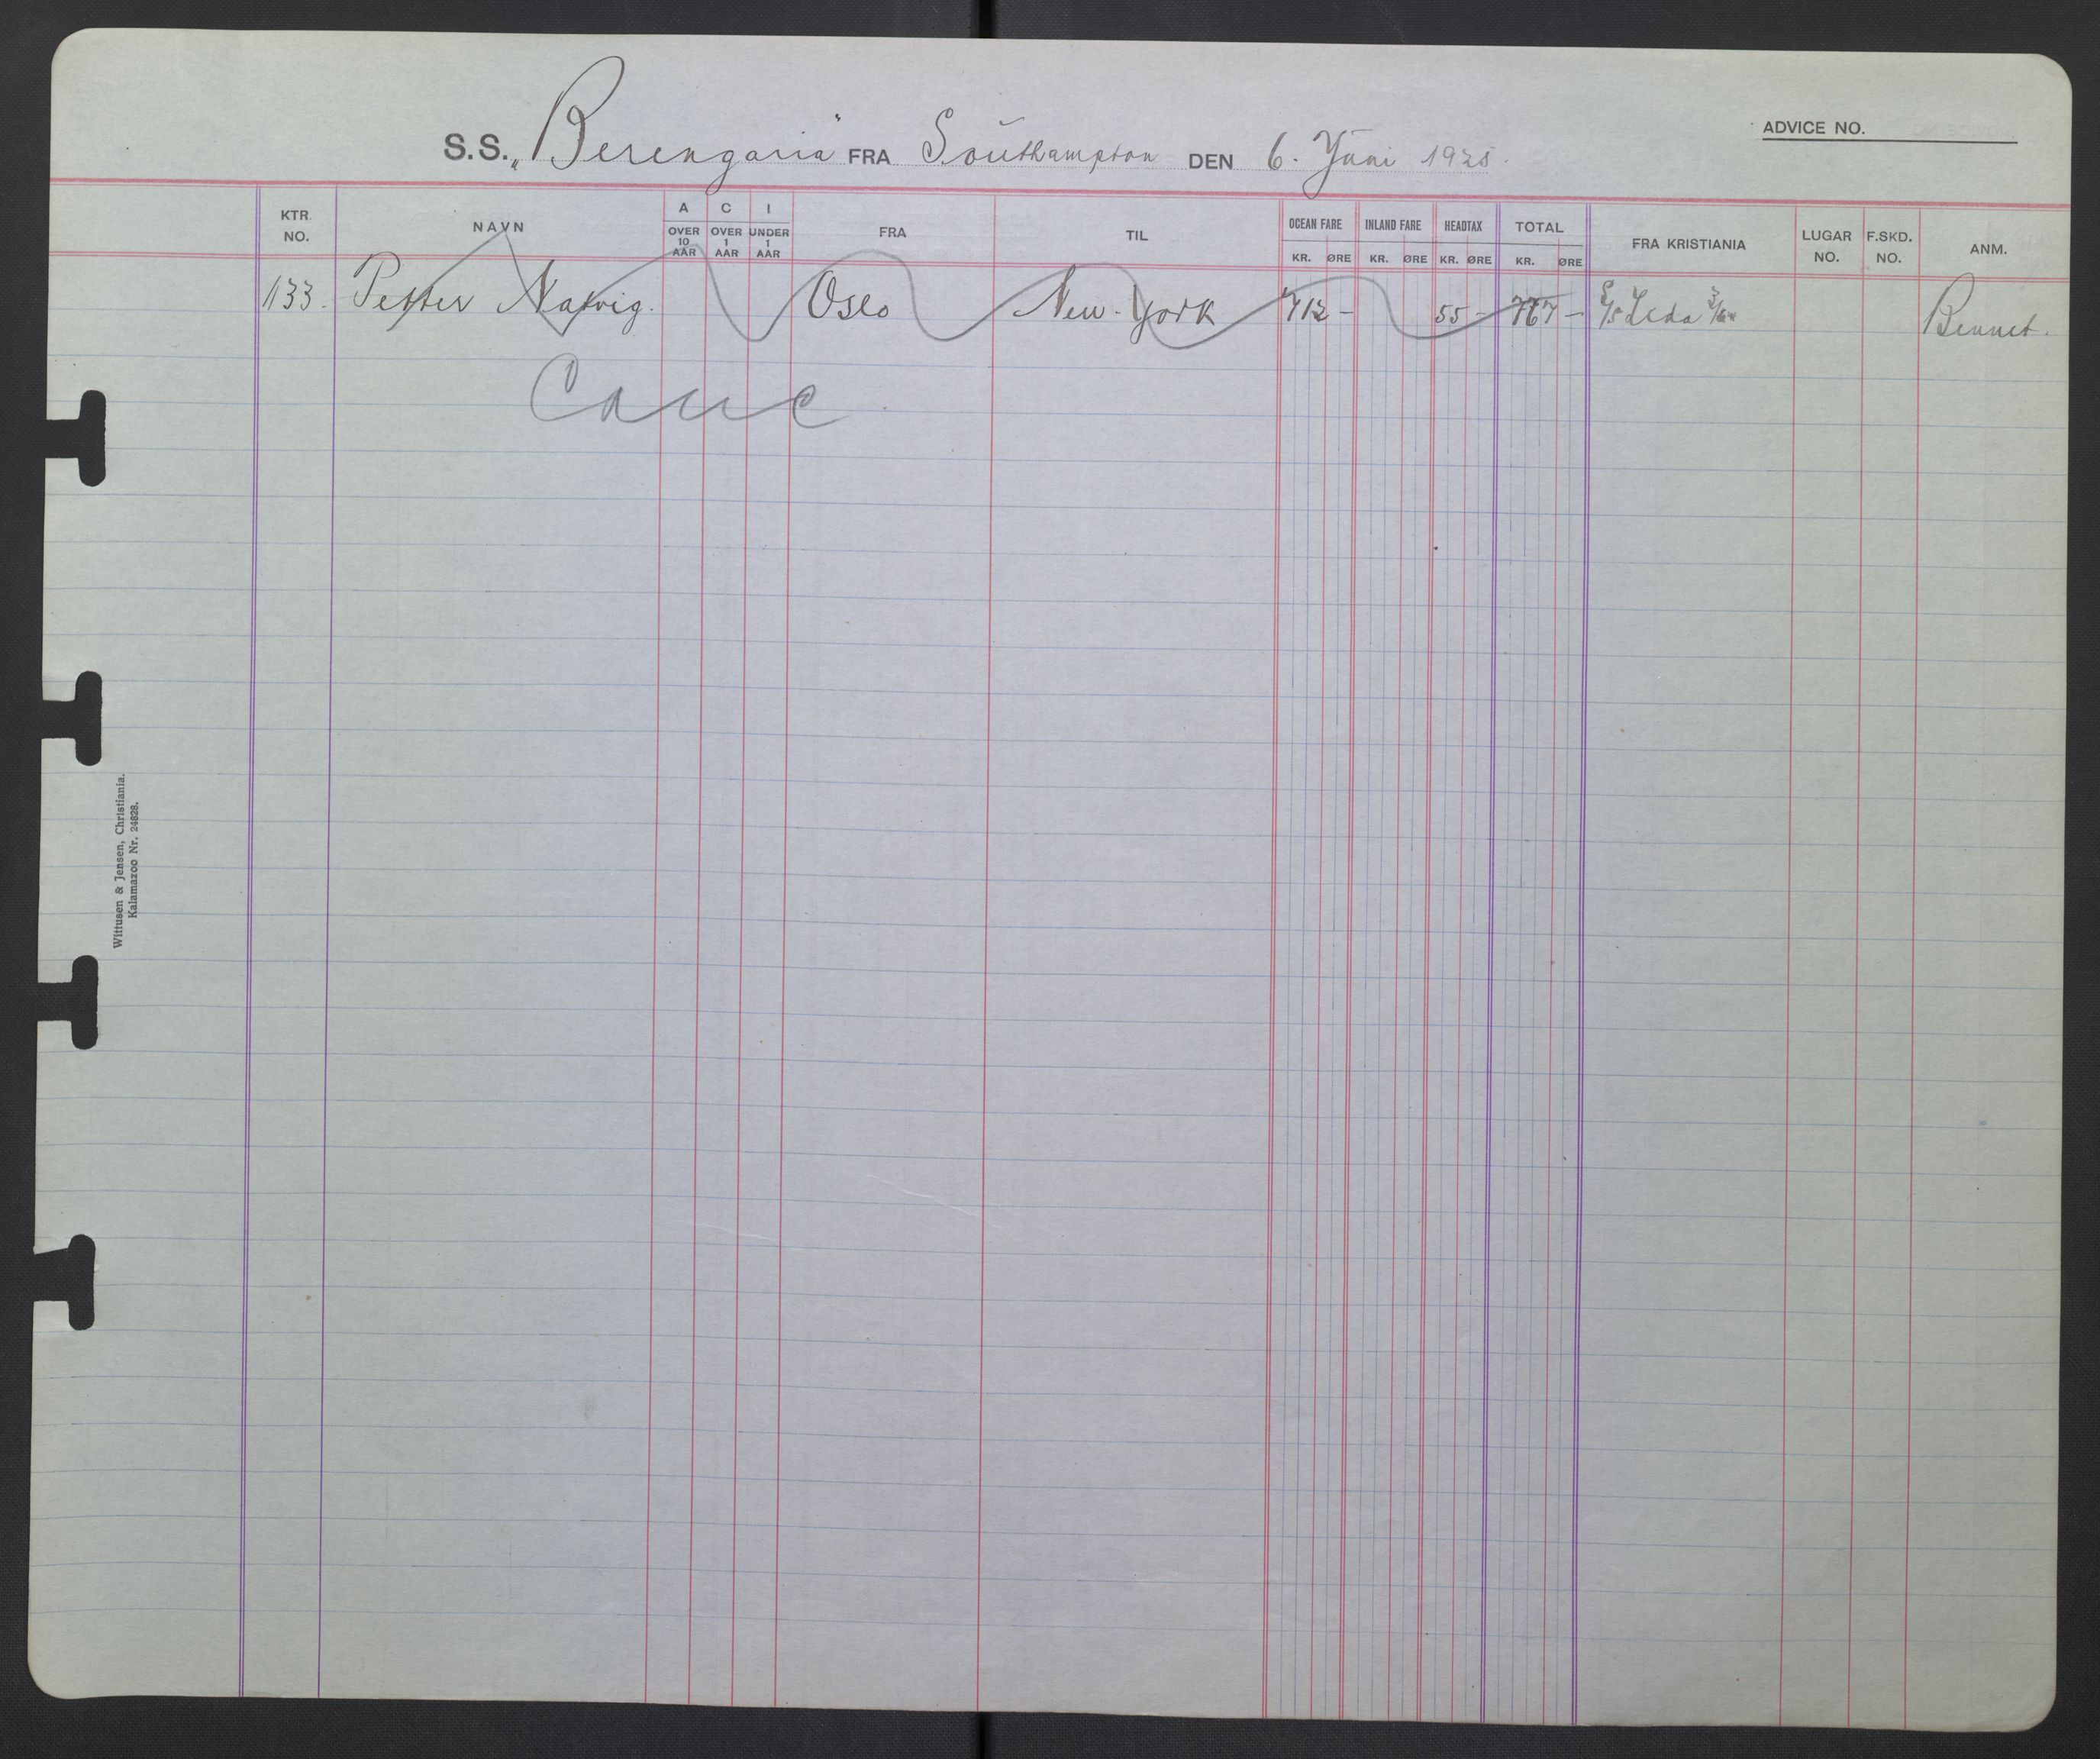 S.S. „Berengaria" FRA Southampton DEN 6. Juni 1925.
ADVICE NO.
KTR. NO. NAVN A OVER 10 AAR C OVER 1 AAR I UNDER 1 AAR FRA TIL OCEAN FARE KR. ØRE INLAND FARE KR. ØRE HEADTAX KR. ØRE TOTAL KR. ØRE FRA KRISTIANIA LUGAR NO. F.SKD. NO. ANM.
133. Petter Natvig. Oslo New-York 712 - 55 - 767 - S/S Leda Bennet.
Canc
Wittusen & Jensen, Christiania.
Kalamazoo Nr. 24828.